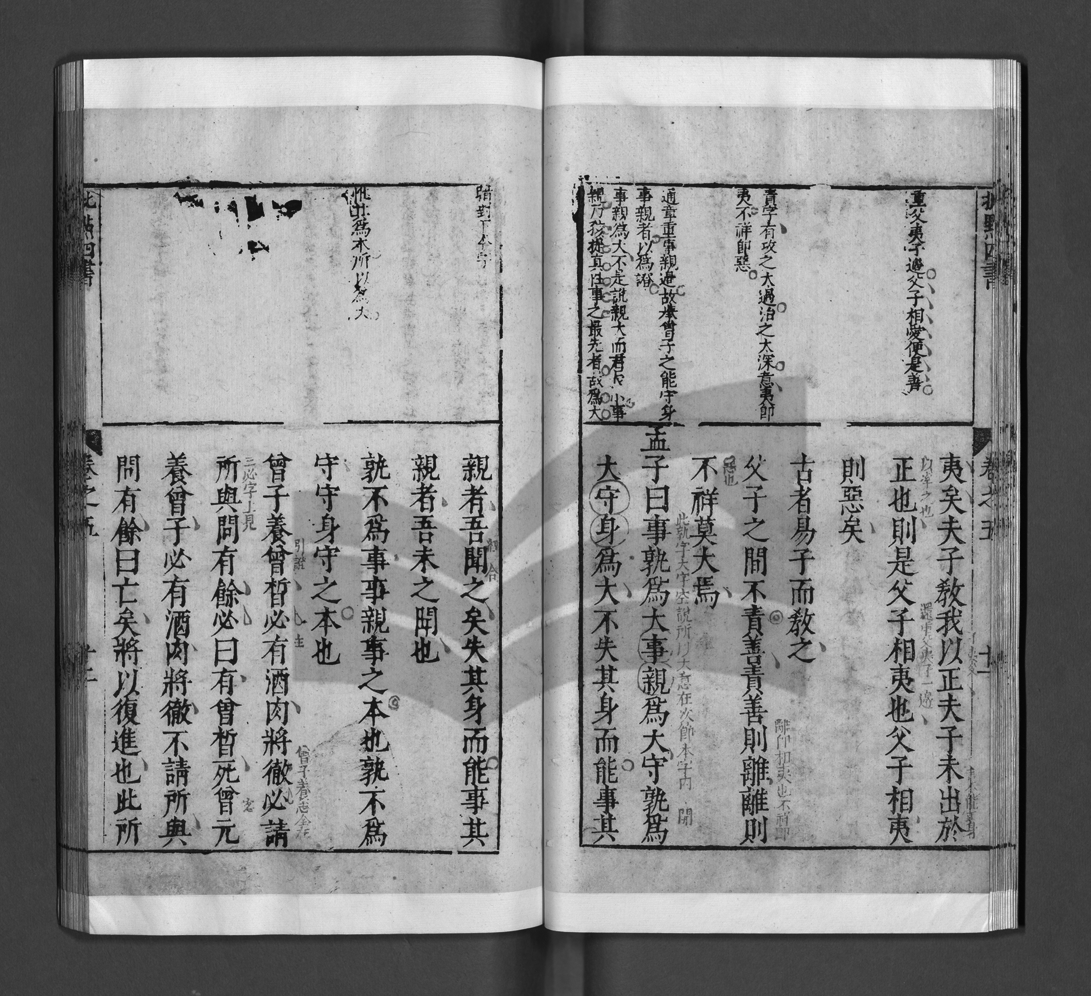 重父夷字邊父子相愛便是善
責字有攻之太過治之太深意夷節
夷不祥節惡
通章重事親邊故壞曾子之能守身
事親者以為證
事親為大不是說親大而君長小事
親乃孩提真性事之最先者故為大
夷矣夫子教我以正夫子未出於
正也則是父子相夷也父子相夷
則惡矣
古者易子而教之
父子之間不責善責善則離離則
不祥莫大焉
孟子曰事孰為大事親為大守孰為
大守身為大不失其身而能事其
卷之五
惟其為本所以為大
親者吾聞之矣失其身而能事其
親者吾未之聞也
孰不為事事親事之本也孰不為
守守身守之本也
曾子養曾皙必有酒肉將徹必請
三必字上見
所與問有餘必曰有曾皙死曾元
養曾子必有酒肉將徹不請所與
問有餘曰亡矣將以復進也此所
點四書
卷之五